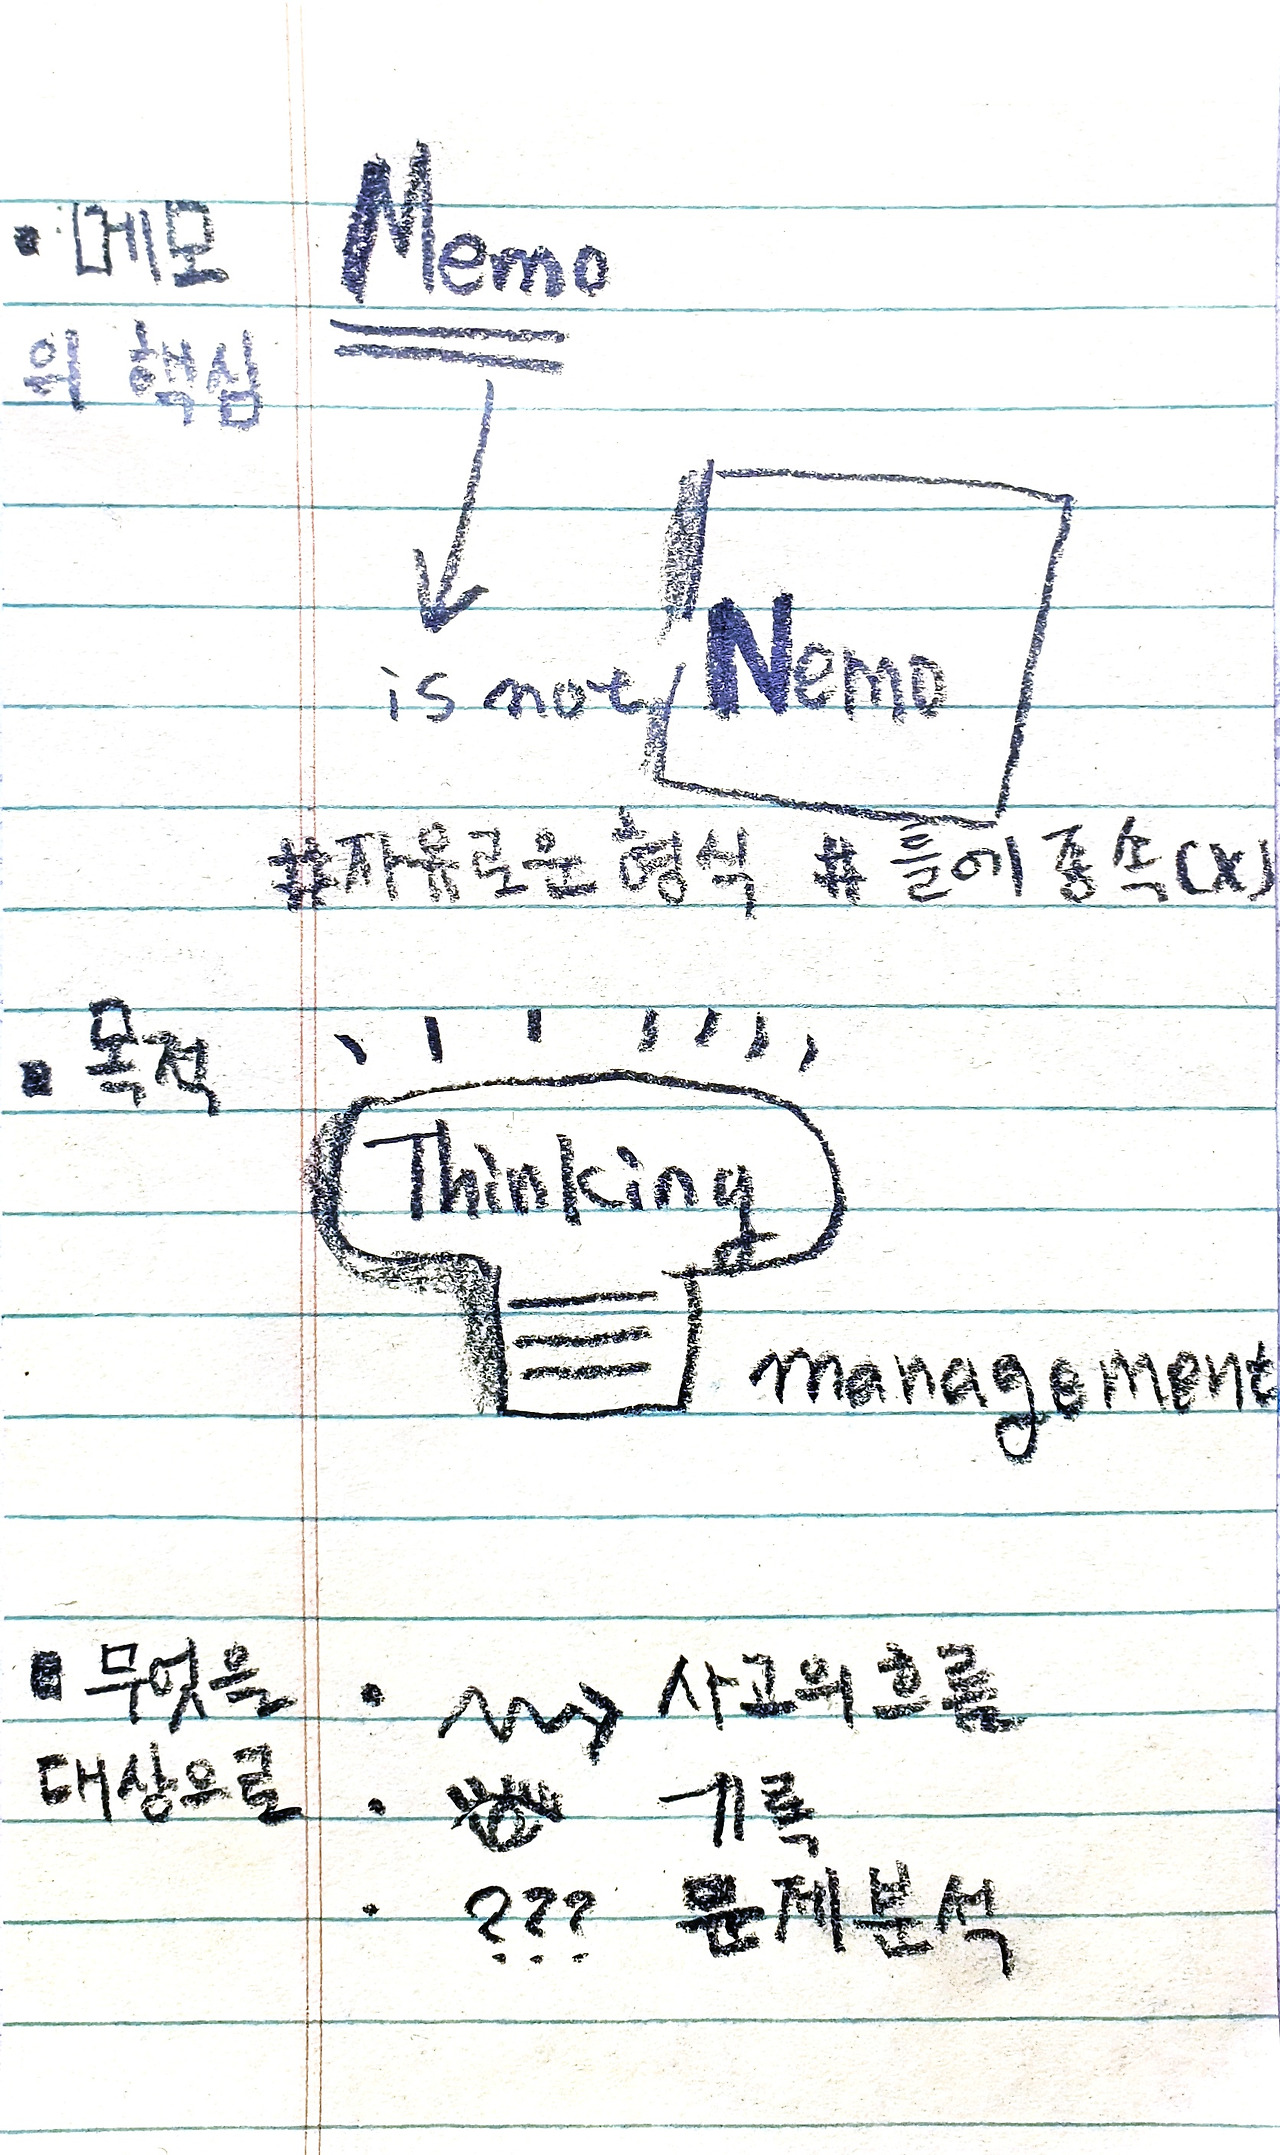 ▪ 메모
의 핵심
Memo
is not Nemo
#자유로운 형식 # 틀에 종속(X)
▪ 목적
Thinking
management
▪ 무엇을
대상으로
• 사고의 흐름
• 기록
• ??? 문제분석